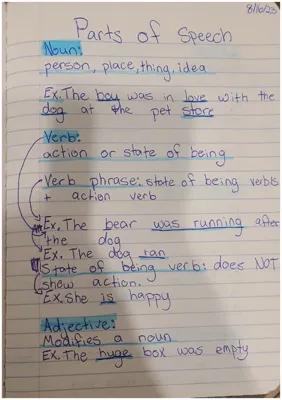 8/16/23
Parts of Speech
Noun:
person, place, thing, idea
Ex. The boy was in love with the
dog at the pet store
Verb:
action or state of being
Verb phrase: state of being verbs
+ action verb
Ex. The bear was running after
the dog
Ex. The dog ran
State of being verb: does NOT
show action.
Ex. She is happy
Adjective:
Modifies a noun
EX. The huge box was empty